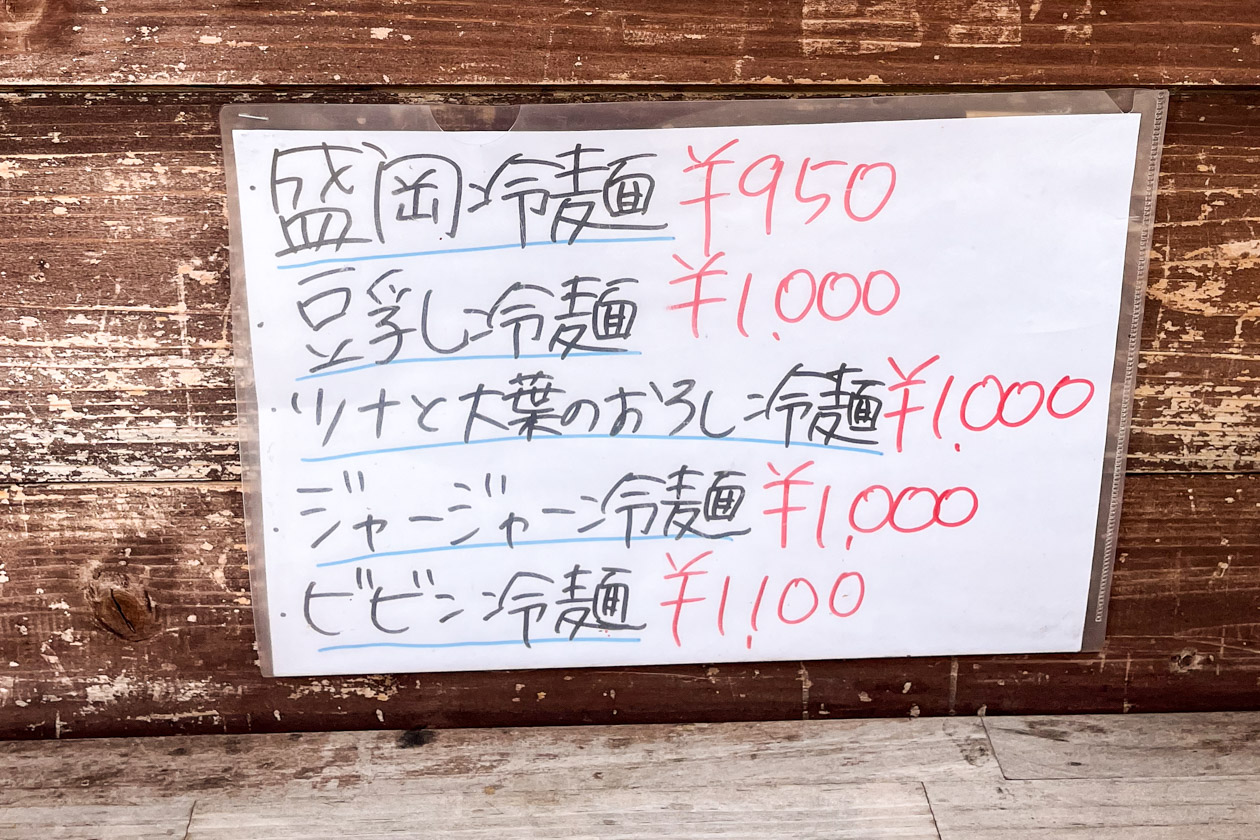 ・盛岡冷麺 ¥950
・豆乳冷麺 ¥1,000
・ツナと大葉のおろし冷麺 ¥1,000
・ジャージャー冷麺 ¥1,000
・ビビン冷麺 ¥1,100